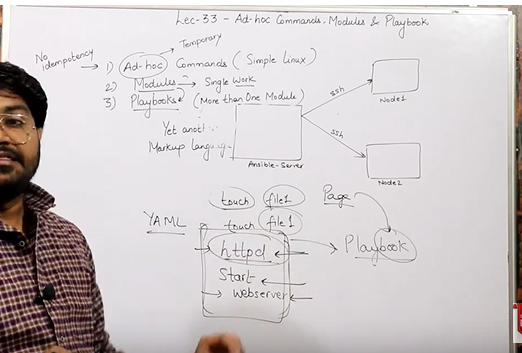 Lec-33 - Ad-hoc Commands, Modules & Playbook
No idempotency
Temporary
1) Ad-hoc Commands (Simple Linux)
2) Modules → Single Work
3) Playbooks (More than One Module)
Yet anoth
Markup languag
Ansible-Server
ssh
Node1
ssh
Node2
touch file1
touch file1
YAML
httpd
Start
webserver
Page
Playbook